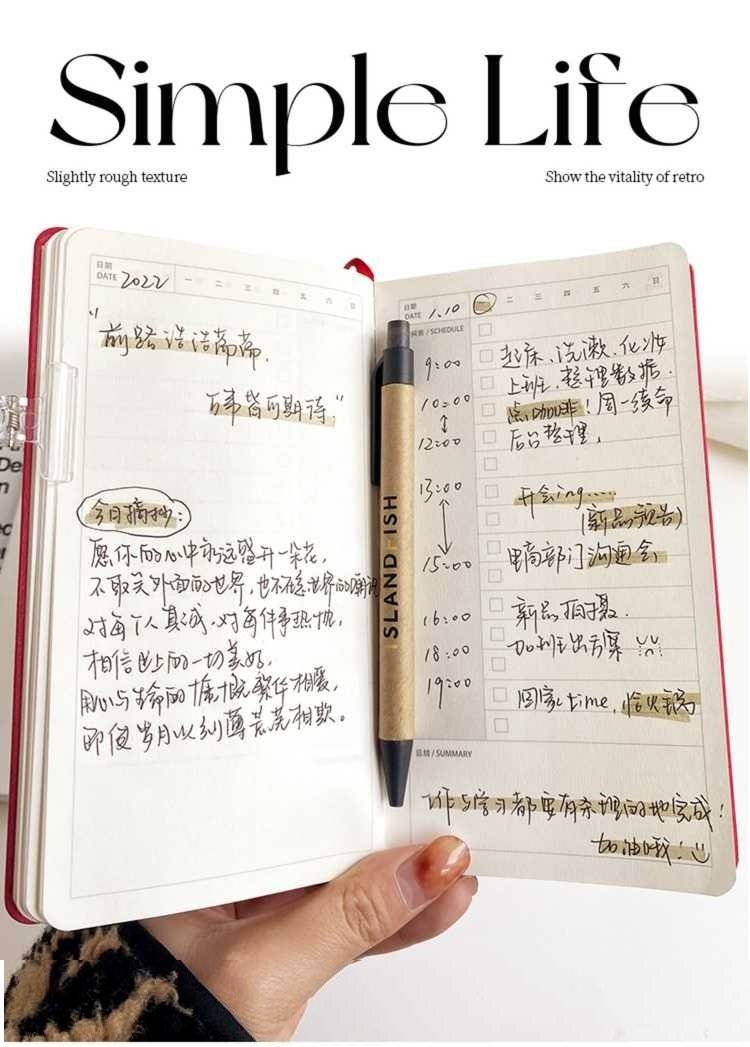 Simple Life
Slightly rough texture
Show the vitality of retro
日期
DATE 2022 一 二 三 四 五 六 日
"前路浩浩荡荡,
万事皆可期待。"
今日摘抄:
愿你的心中永远盛开一朵花,
不取悦外面的世界,也不在意世界的
对每个人真诚,对每件事热忱,
相信世上的一切美好,
用心与生命的慷慨繁华相爱,
即使岁月以刻薄荒芜相欺。
日期
DATE 1.10 一 二 三 四 五 六 日
/ SCHEDULE
9:00 起床、洗漱、化妆
上班,整理数据.
10:00 点咖啡!周一续命
12:00 后台整理,
13:00 开会ing......
(新品预告)
15:00 电商部门沟通会.
16:00 新品拍摄.
18:00 加班出方案
19:00 回家time,恰火锅
ISLANDFISH
总结 / SUMMARY
工作与学习都要有条理的地完成!
加油哦!